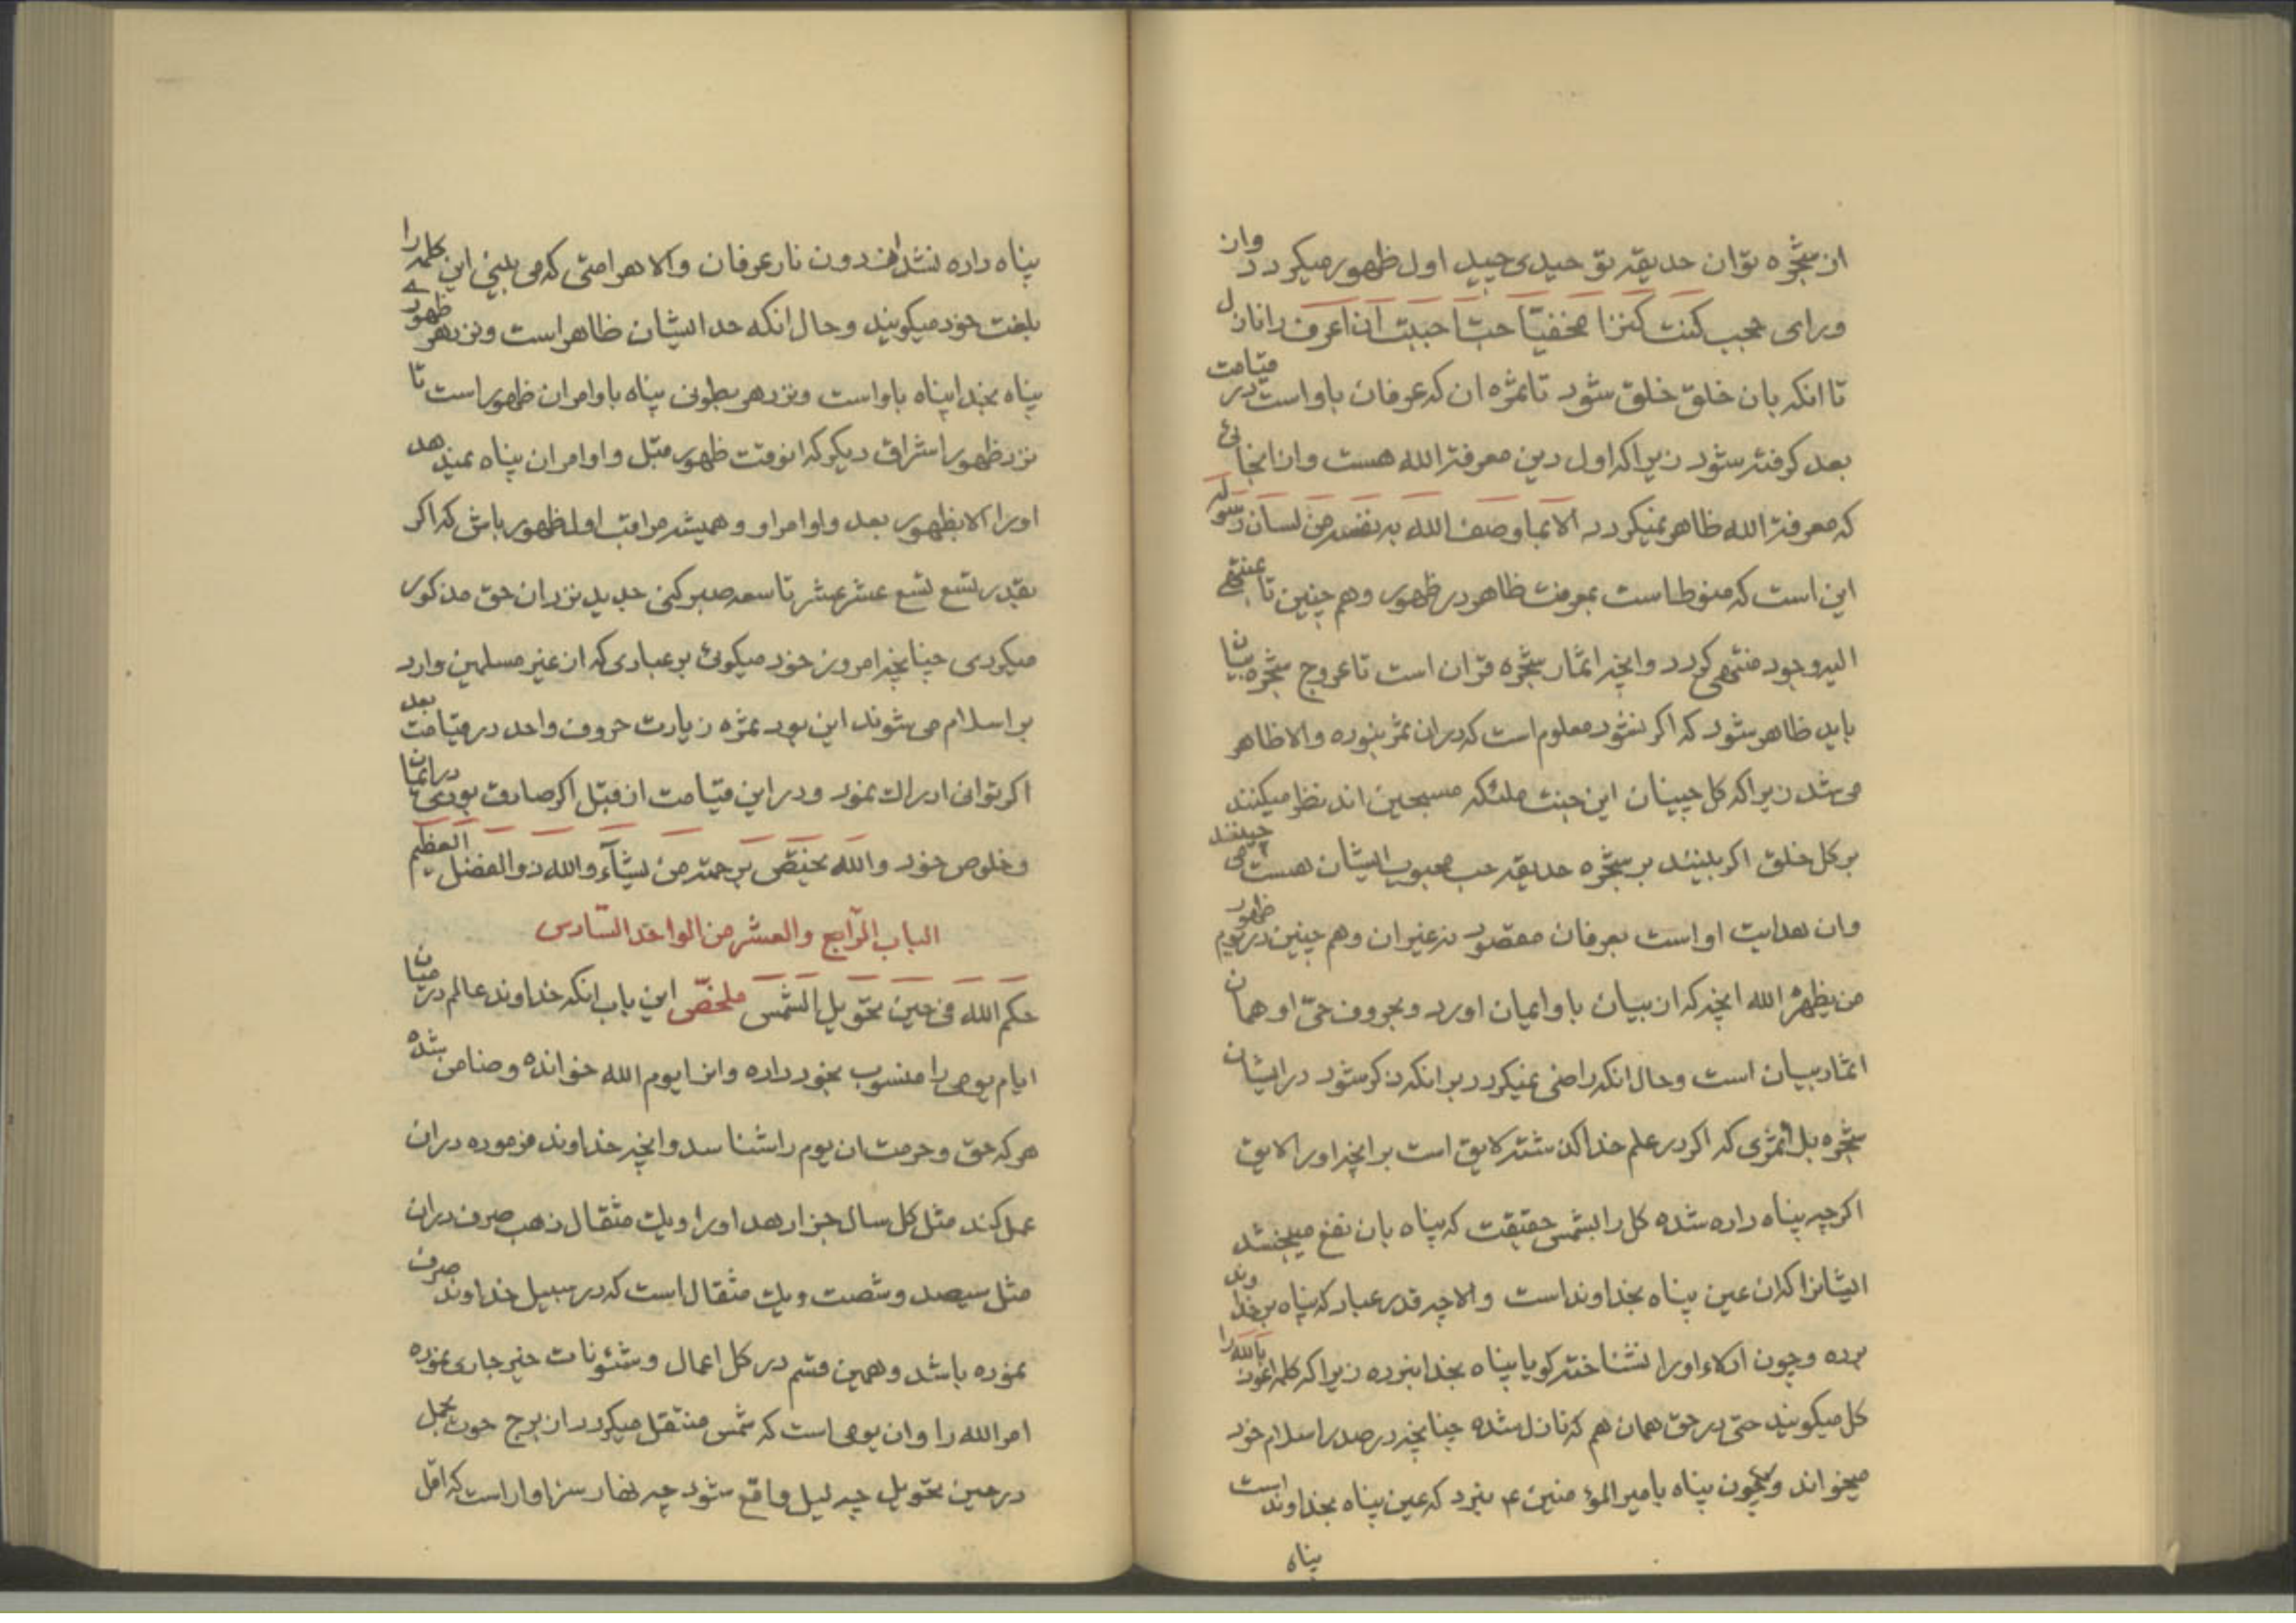 از شجره توان حدیقه توحیدی چید اول ظهور میکردد وان
ورای حجب کنت کنزا مخفیّا حبّا احببت ان اعرف را نازل
تا انکه بان خلق خلق شود تا ثمره ان که عرفان باو است در قیامت
بعد کرفته شود زیرا که اول دین معرفة الله هست و از انجائی
که معرفة الله ظاهر نمیکردد الا بما وصف الله به نفسه من لسان رسوله
این است که منوط است بمعرفت ظاهر در ظهور و هم چنین تا ینتهی
الیه وجود منتهی کردد و انچه اثمار شجره قران است تا عروج شجره بیان
باید ظاهر شود که اکر نشود معلوم است که در ان ثمر نبوده والا ظاهر
می شد زیرا که کل چینان این جنت ملئکه مسبحین اند نظر میکنند
بر کل خلق اکر بینند بر شجره حدیقه حب محبوب ایشان هست می چینند
وان هدایت او است بعرفان مقصود نه غیر ان و هم چنین در یوم ظهور
من یظهره الله انچه که از بیان باو ایمان اورد و بحروف حیّ او همان
اثمار بیان است و حال انکه راضی نمیکردد بر انکه ذکر شود در ایشان
شجره بل اثمری که اکر در علم خدا کذشته لایق است بر انچه اورا لایق
اکرچه پناه داده شده کل را بشمس حقیقت که پناه بان نفع میبخشد
ایشانرا که ان عین پناه بخداوند است والا چه قدر عباد که پناه بر خداوند
برده و چون ادلاء اورا نشناخته کویا پناه بخدا نبرده زیرا که کلمه اعوذ بالله را
کل میکویند حتی در حق همان هم که نازل شده چنانچه در صدر اسلام خود
میخواند و چون پناه بامیر المؤمنین ع نبرد که عین پناه بخداوند است
پناه
پناه داده نشد از دون نار عرفان والا هر امتی که می بینی این کلمه را
بلغت خود میکویند و حال انکه حد ایشان ظاهر است و نزد هر ظهوری
پناه بخدا پناه باو است و نزد هر بطونی پناه باوامر ان ظهور است تا
نزد ظهور اشراق دیکر که انوقت ظهور قبل و اوامر ان پناه نمیدهد
اورا الا بظهور بعد و اوامر او و همیشه مراقب اول ظهور باش که اکر
بقدر تسع تسع عشر عشر تاسعه صبر کنی جدید نزد ان حق مذکور
میکردی چنانچه امروز خود میکوئی بر عبادی که از غیر مسلمین وارد
بر اسلام می شوند این بود ثمره زیارت حروف واحد در قیامت بعد
اکر توانی ادراك نمود و در این قیامت از قبل اکر صادق بودی در ایمان
و خلوص خود والله یختصّ برحمته من یشآء والله ذوالفضل العظیم
الباب الرّابع والعشر من الواحد السّادس
حکم الله فی حین تحویل الشّمس ملخّص این باب انکه خداوند عالم در میان
ایام یومی را منسوب بخود داده و انرا یوم الله خوانده و ضامن شده
هر که حق و حرمت ان یوم را شناسد و انچه خداوند فرموده در ان
عمل کند مثل کل سال جزا دهد اورا و یك مثقال ذهب صرف در ان
مثل سیصد و شصت و یك مثقال است که در سبیل خداوند صرف
نموده باشد و همین قسم در کل اعمال و شئونات خیر جاری نموده
امر الله را وان یومی است که شمس منتقل میکردد از برج حوت بحمل
در حین تحویل چه لیل واقع شود چه نهار سزاوار است که اقل